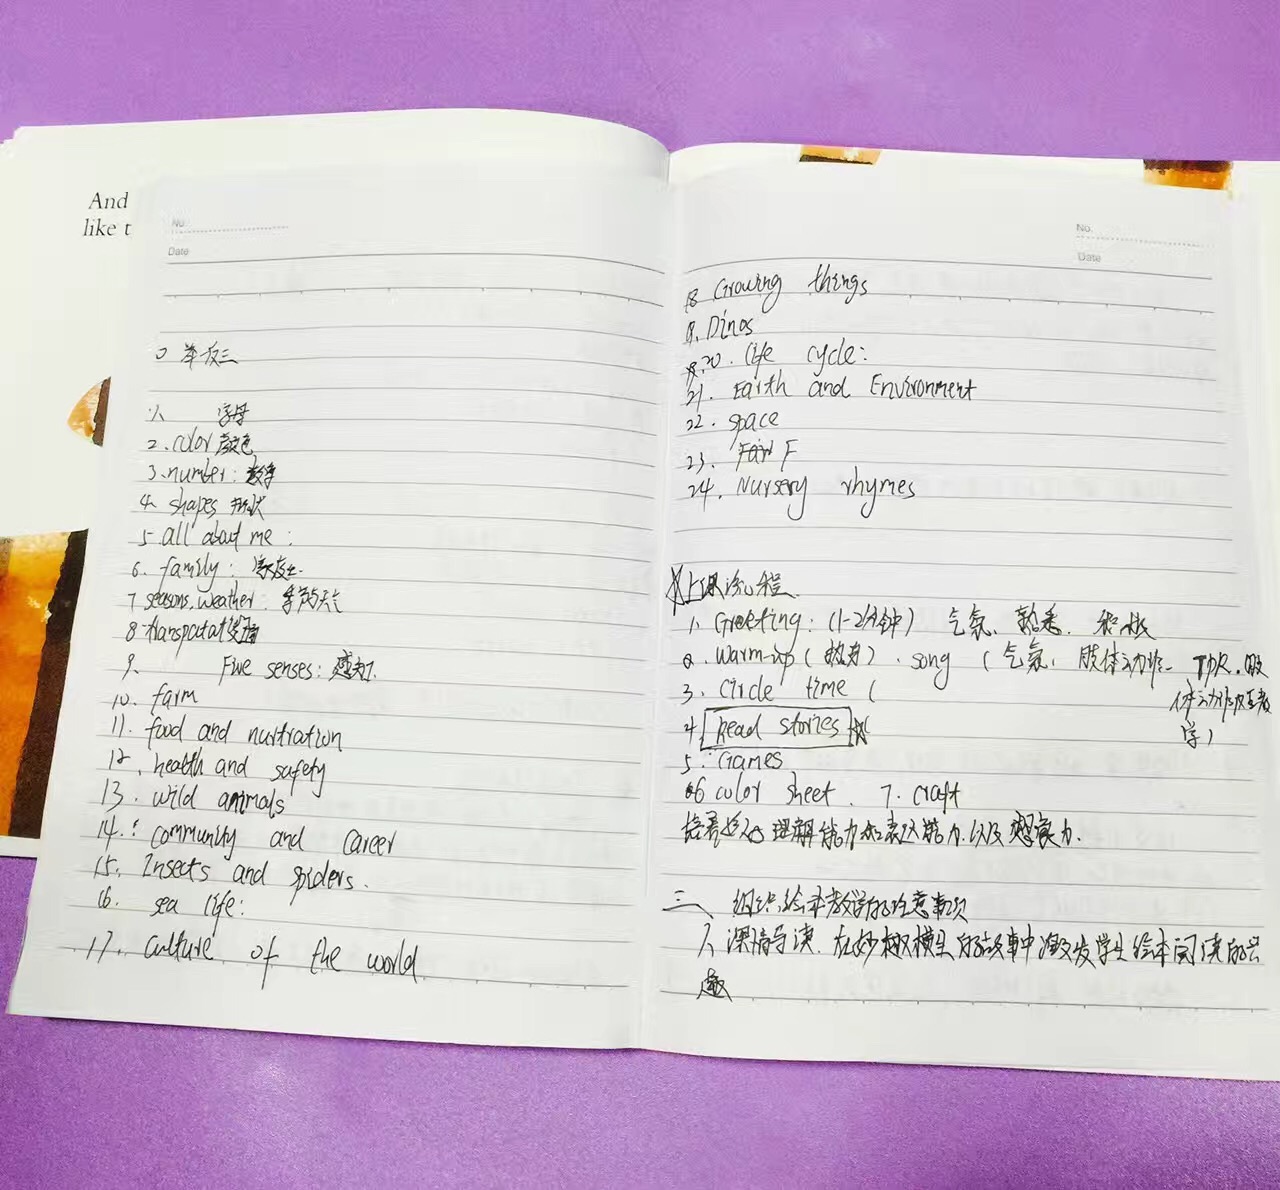 And
like t
No.
Date
举反三
1、 字母
2. color 颜色
3. number: 数字
4. shapes 形状
5. all about me :
6. family :
7 seasons, weather : 季节天气
8 transpatat
9、 Five senses: 感知
10. farm
11. food and nurtration
12. health and safety
13. wild animals
14. : community and career
15. Insects and spiders.
16. sea life:
17. culture of the world
No.
Date
18 Growing things
19. Dinos
20. life cycle:
21. Earth and Environment
22. space
23. Fair F
24. Nursery rhymes
上课流程
1. Greeting: (1-2分钟) 气氛、熟悉.
2. Warm-up (热身). song (气氛, 肢体动作- TPR. 肢
体动作
学)
3. Circle time (
4. Read stories
5. Games
6 color sheet. 7. craft
培养 理解能力和表达能力.以及想象力.
三、 组织绘本教学的注意事项
1、深情导读. 在妙趣横生的故事中激发学生绘本阅读的兴
趣